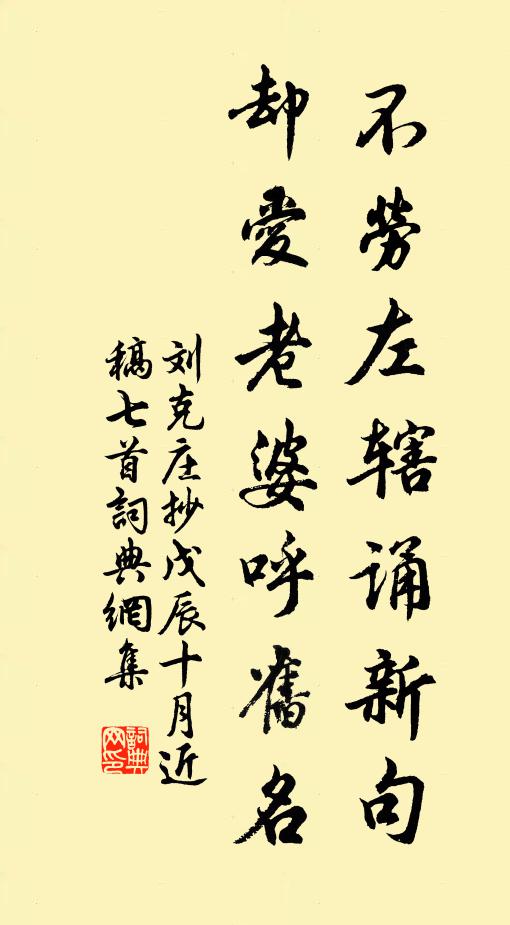 不劳左辖诵新句
却愛老婆呼舊名
刘克庄抄戊辰十月近
稿七首詞典網集
詞典網印